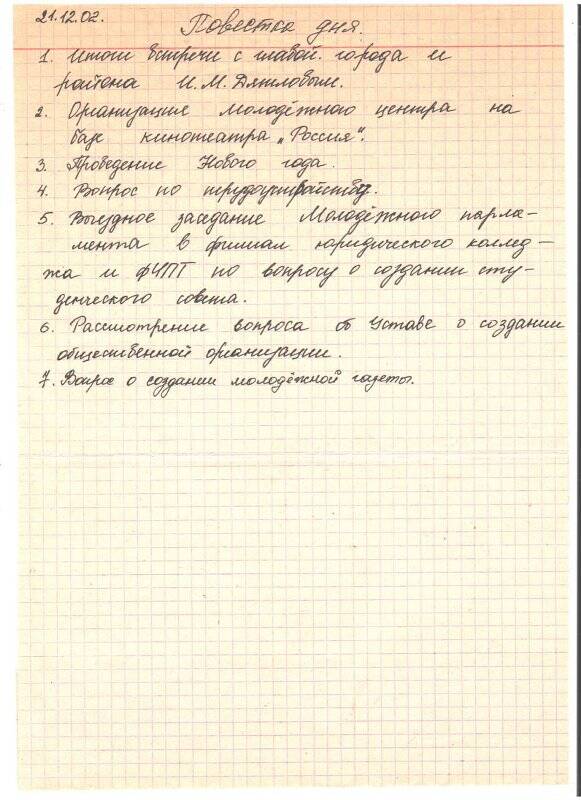 21.12.02.
Повестка дня.
1. Итоги встречи с главой города и
района И.М. Дятловым.
2. Организация молодёжного центра на
базе кинотеатра „Россия".
3. Проведение Нового года.
4. Вопрос по трудоустройству.
5. Выездное заседание Молодёжного парла-
мента в филиал юридического коллед-
жа и ФЧПТ по вопросу о создании сту-
денческого совета.
6. Рассмотрение вопроса об Уставе о создании
общественной организации.
7. Вопрос о создании молодёжной газеты.